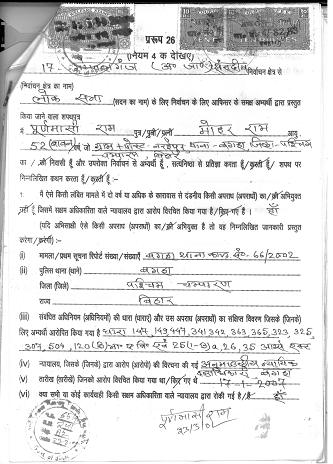 प्ररूप 26
(नियम 4 क देखिए)
निर्वाचन क्षेत्र से
(निर्वाचन क्षेत्र का नाम)
लोक सभा (सदन का नाम) के लिए निर्वाचन के लिए आफिसर के समक्ष अभ्यर्थी द्वारा प्रस्तुत
किया जाने वाला शपथपत्र
मैं पूर्णमासी राम पुत्र/पुत्री/पत्नी मोहर राम आयु
52 (बावन) वर्ष जो ग्राम + पोस्ट नरईपुर थाना - बगहा जिला - पश्चिम
चम्पारण, बिहार
का/की निवासी हूँ और उपरोक्त निर्वाचन से अभ्यर्थी हूँ, सत्यनिष्ठा से प्रतिज्ञा करता हूँ/करती हूँ, शपथ पर
निम्नलिखित कथन करता हूँ/करती हूँ,
मैं ऐसे किसी लंबित मामले में दो वर्ष या अधिक के कारावास से दंडनीय किसी अपराध (अपराधों) का/की अभियुक्त
नहीं हूँ जिसमें सक्षम अधिकारिता वाले न्यायालय द्वारा आरोप विरचित किया गया है/किए गए हैं । हाँ
(यदि अभिसाक्षी ऐसे किसी अपराध (अपराधों) का/की अभियुक्त है तो वह निम्नलिखित जानकारी प्रस्तुत
करेगा/करेगी):-
(i) मामला/प्रथम सूचना रिपोर्ट संख्या/संख्याएं बगहा थाना काण्ड सं०-66/2002
(ii) पुलिस थाना (थाने) बगहा
जिला (जिले) पश्चिम चम्पारण
राज्य बिहार
(iii) संबंधित अधिनियम (अधिनियमों) की धारा (धाराएं) और उस अपराध (अपराधों) का संक्षिप्त विवरण जिसके (जिनके)
लिए अभ्यर्थी आरोपित किया गया है धारा 147, 149, 447, 341, 342, 363, 365, 323, 325
307, 504, 120(B) 26, 35 आर्म्स एक्ट
(iv) न्यायालय, जिसके (जिनके) द्वारा आरोप (आरोपों) की विरचना की गई अनुमण्डलीय न्यायिक
बगहा
(v) तारीख (तारीखें) जिनको आरोप विरचित किया गया था/किए गए थे 17-1-2007
(vi) क्या सभी या कोई कार्यवाही किसी सक्षम अधिकारिता वाले न्यायालय द्वारा रोकी गई है/हैं हाँ
पूर्णमासी राम